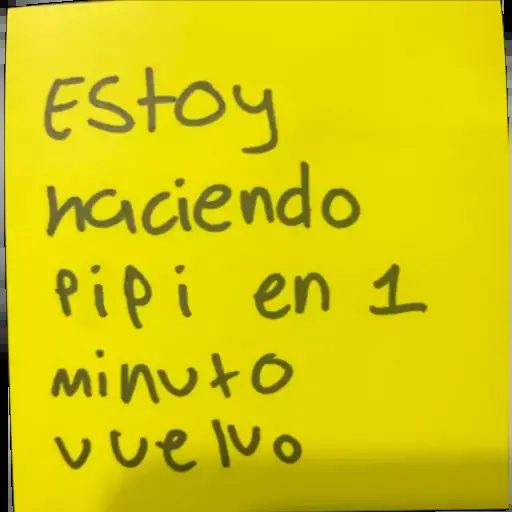 Estoy
haciendo
pipi en 1
minuto
vuelvo